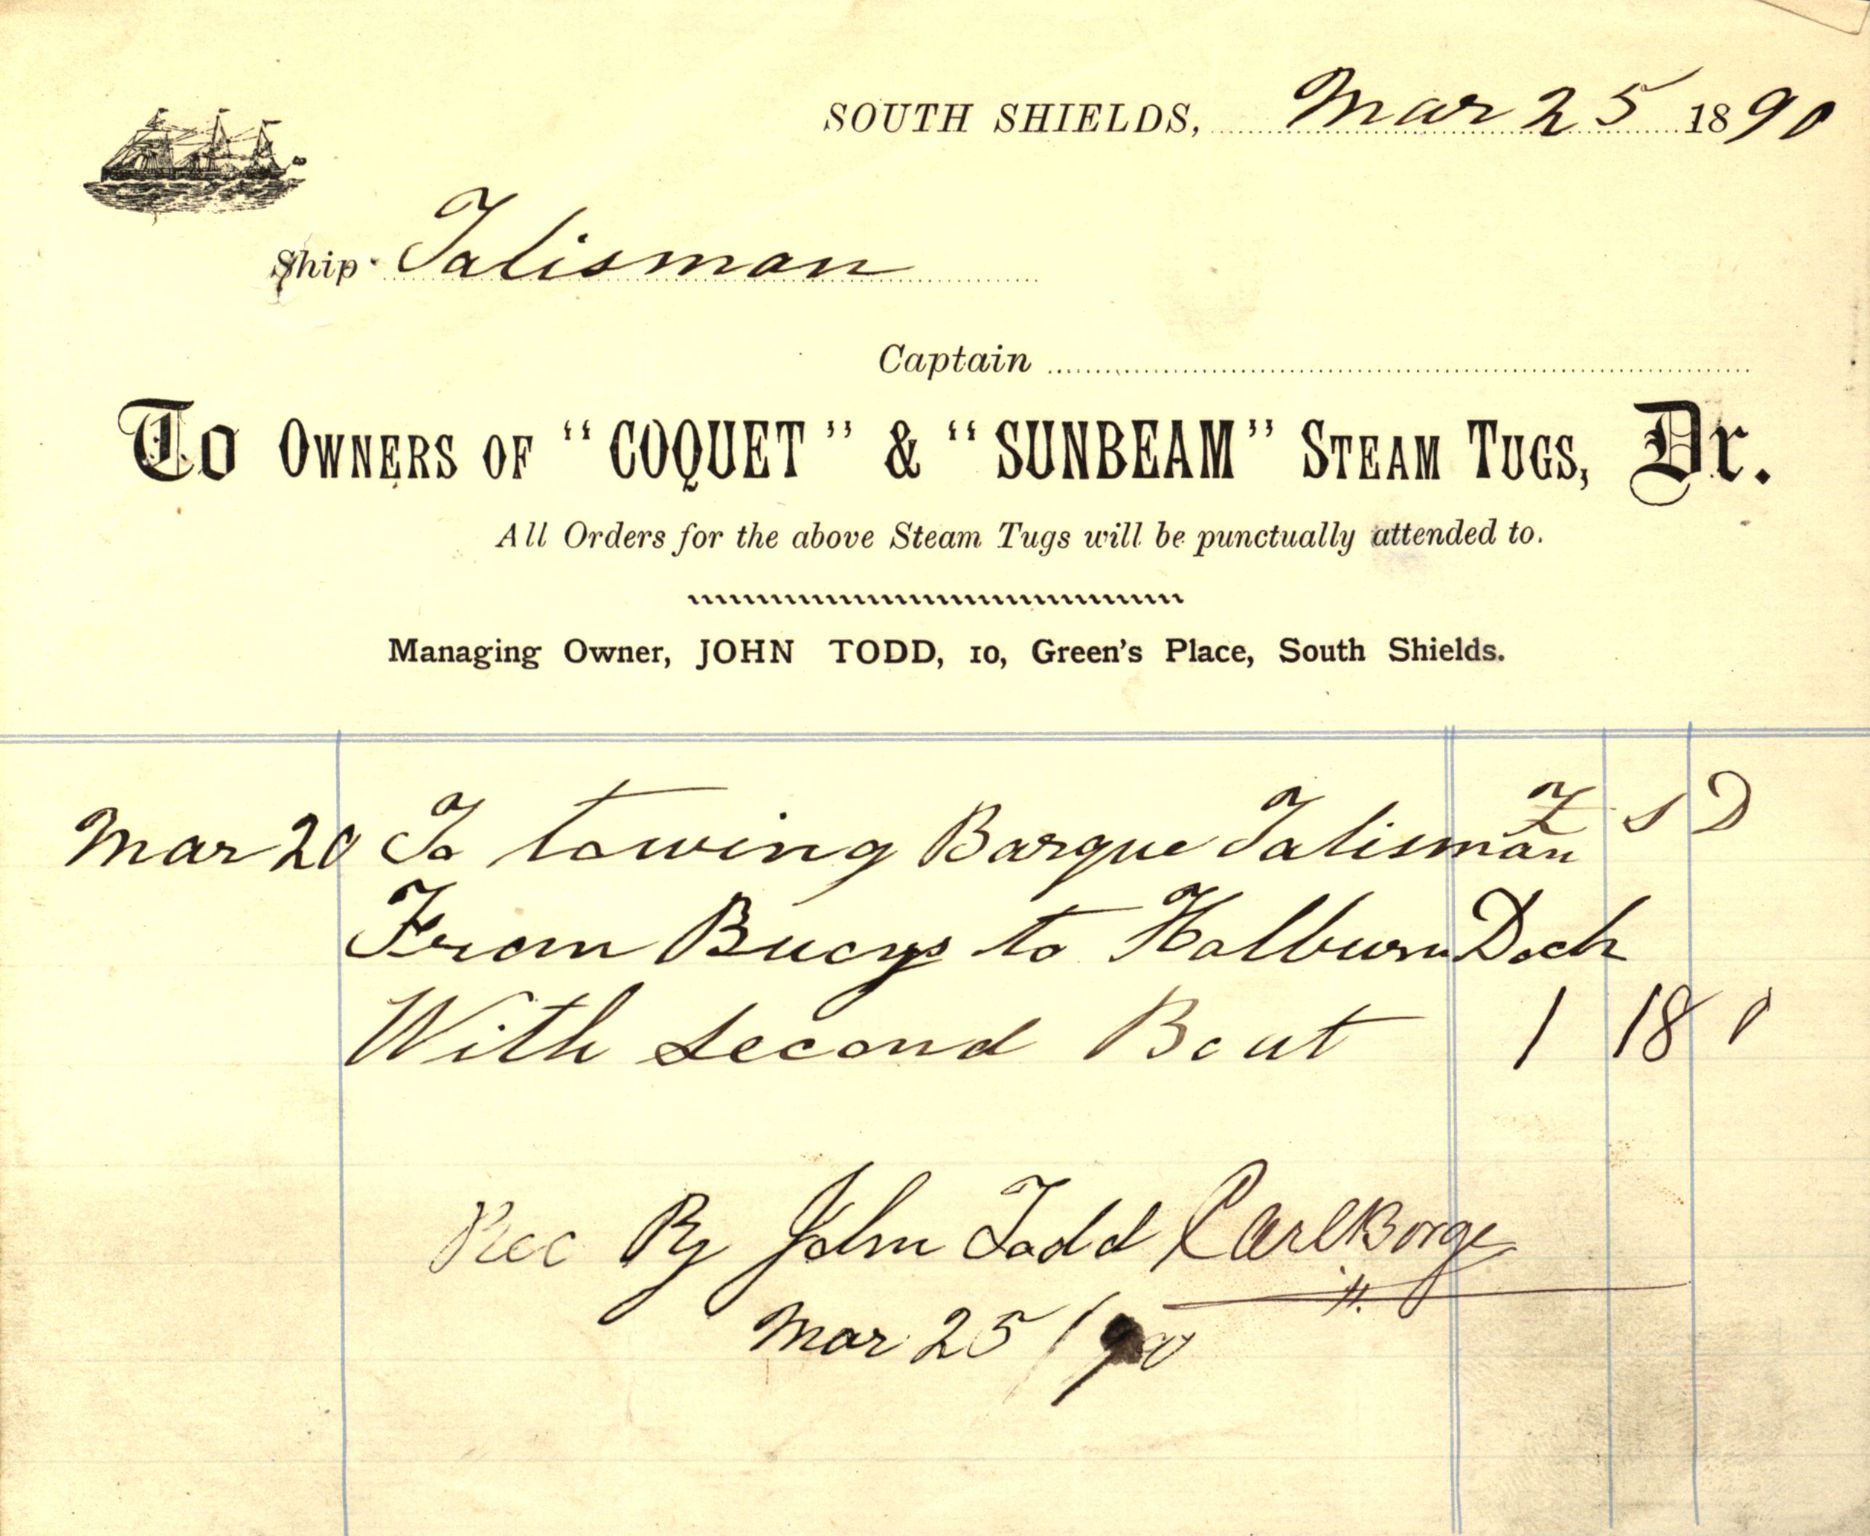 SOUTH SHIELDS, Mar 25 1890
Ship Talisman
Captain
To OWNERS OF "COQUET" & "SUNBEAM" STEAM TUGS, Dr.
All Orders for the above Steam Tugs will be punctually attended to.
Managing Owner, JOHN TODD, 10, Green's Place, South Shields.
£ S D
Mar 20 To towing Barque Talisman
From Buoys to Holburn Dock
With second Boat 1 18 0
Rec By John Todd Carl Borge
Mar 25/90